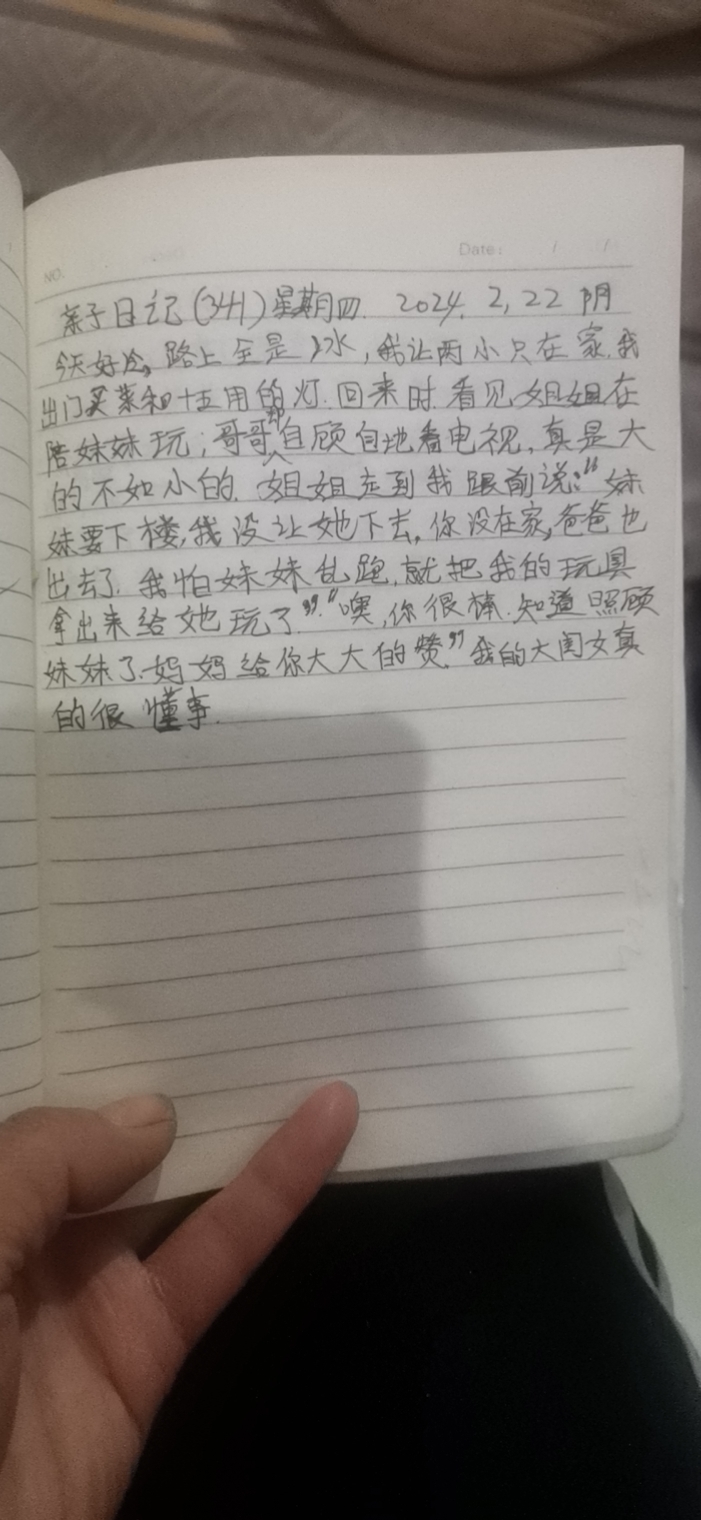 NO.
Date: / /
亲子日记(341)星期四. 2024. 2, 22 阴
今天好冷, 路上全是冰, 我让两小只在家. 我
出门买菜和十五用的灯. 回来时. 看见姐姐在
陪妹妹玩; 哥哥却自顾自地看电视, 真是大
的不如小的. 姐姐走到我跟前说:“妹
妹要下楼, 我没让她下去, 你没在家, 爸爸也
出去了. 我怕妹妹乱跑. 就把我的玩具
拿出来给她玩了”.“噢, 你很棒. 知道照顾
妹妹了. 妈妈给你大大的赞.” 我的大闺女真
的很懂事.